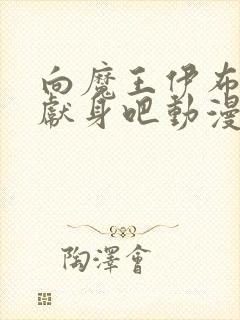 向魔王伊布
獻身吧動漫
陶澤會